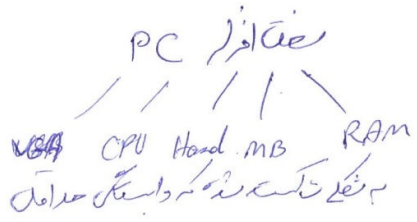 سخت افزار PC
VGA CPU Hard MB RAM
به شکلی شکسته شده که وابستگی حداقل